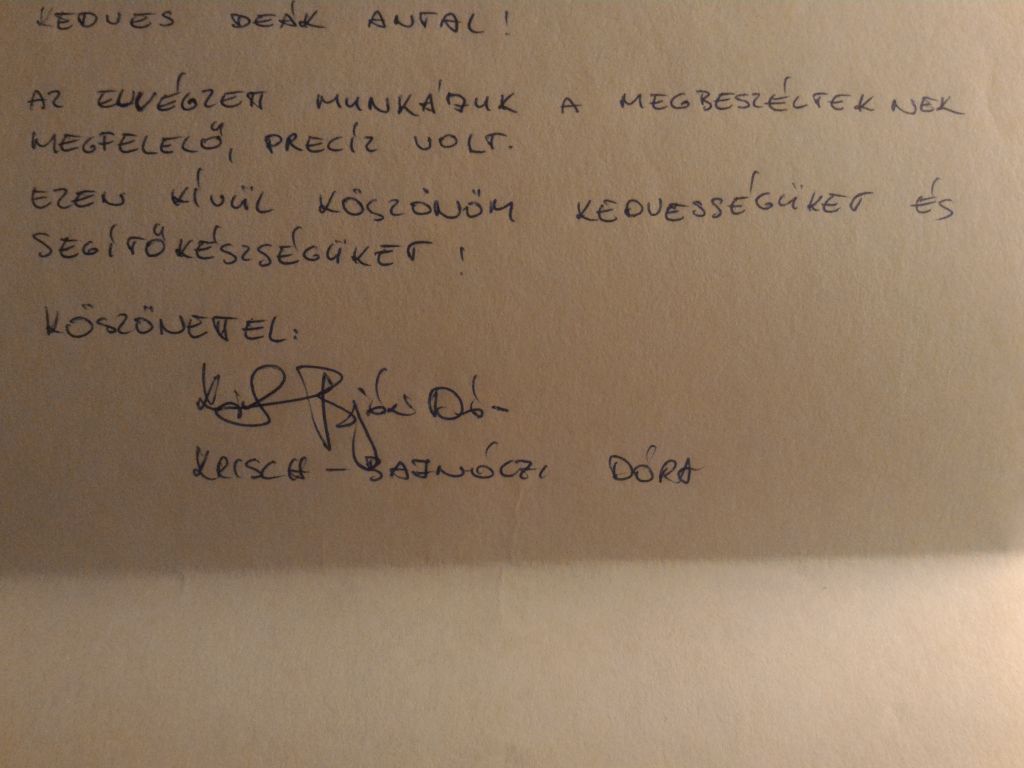 KEDVES DEÁK ANTAL!
AZ ELVÉGZETT MUNKÁJUK A MEGBESZÉLTEKNEK
MEGFELELŐ, PRECÍZ VOLT.
EZEN KÍVÜL KÖSZÖNÖM KEDVESSÉGÜKET ÉS
SEGÍTŐKÉSZSÉGÜKET!
KÖSZÖNETTEL:
KEISCH-BAJNÓCZI DÓRA